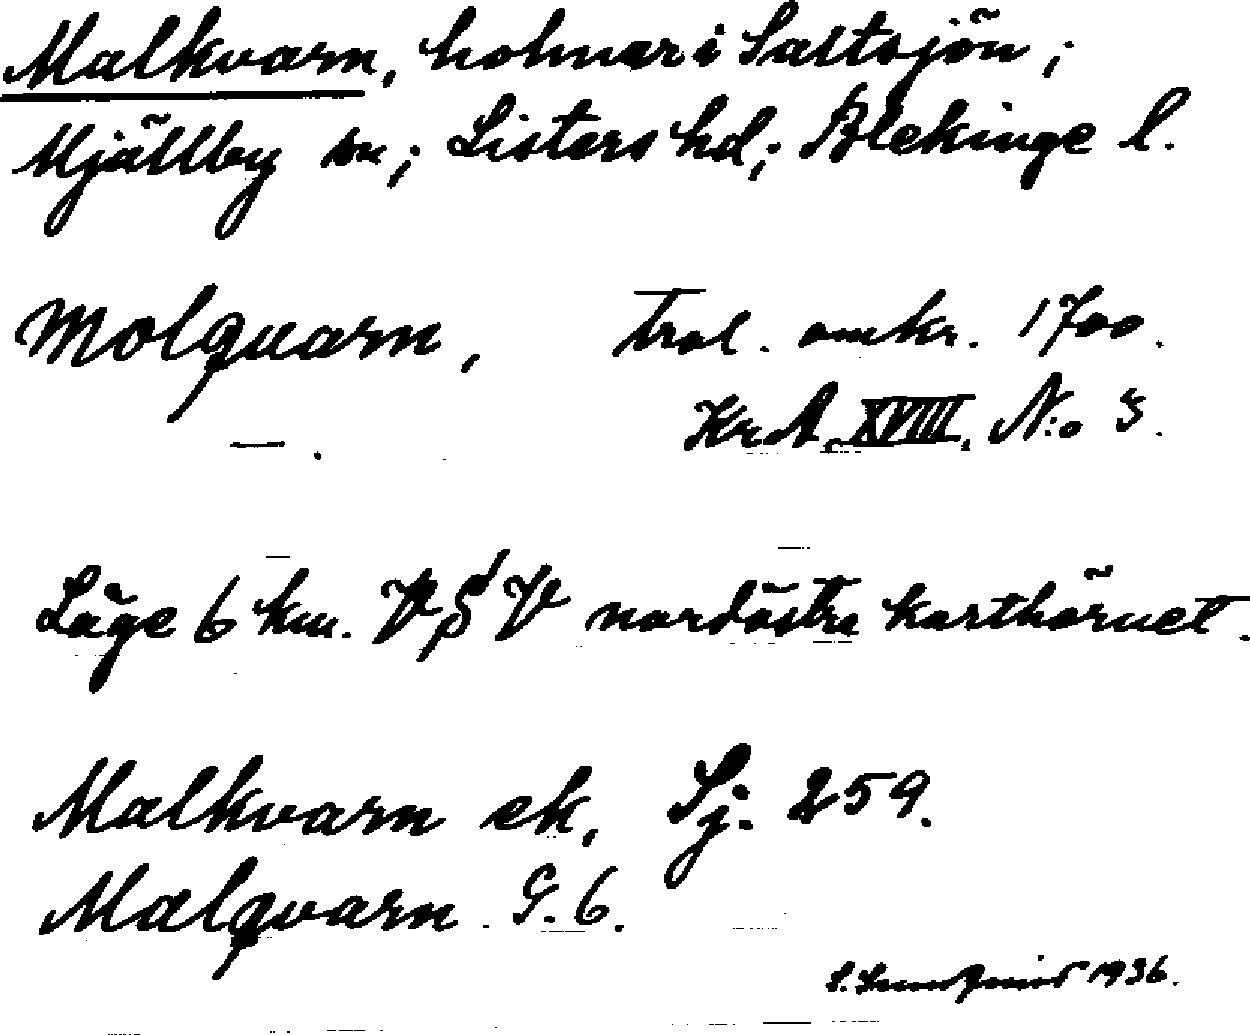 Malkvarn, holmar i Saltsjön;
Mjällby sn; Listers hd; Blekinge l.
Molqvarn, Trol. omkr. 1700.
— . Kr. A. XVIII. N:o 3.
Läge 6 km. VSV nordöstra karthörnet.
Malkvarn ek, Sj. 259.
Malqvarn G. 6.
1936.